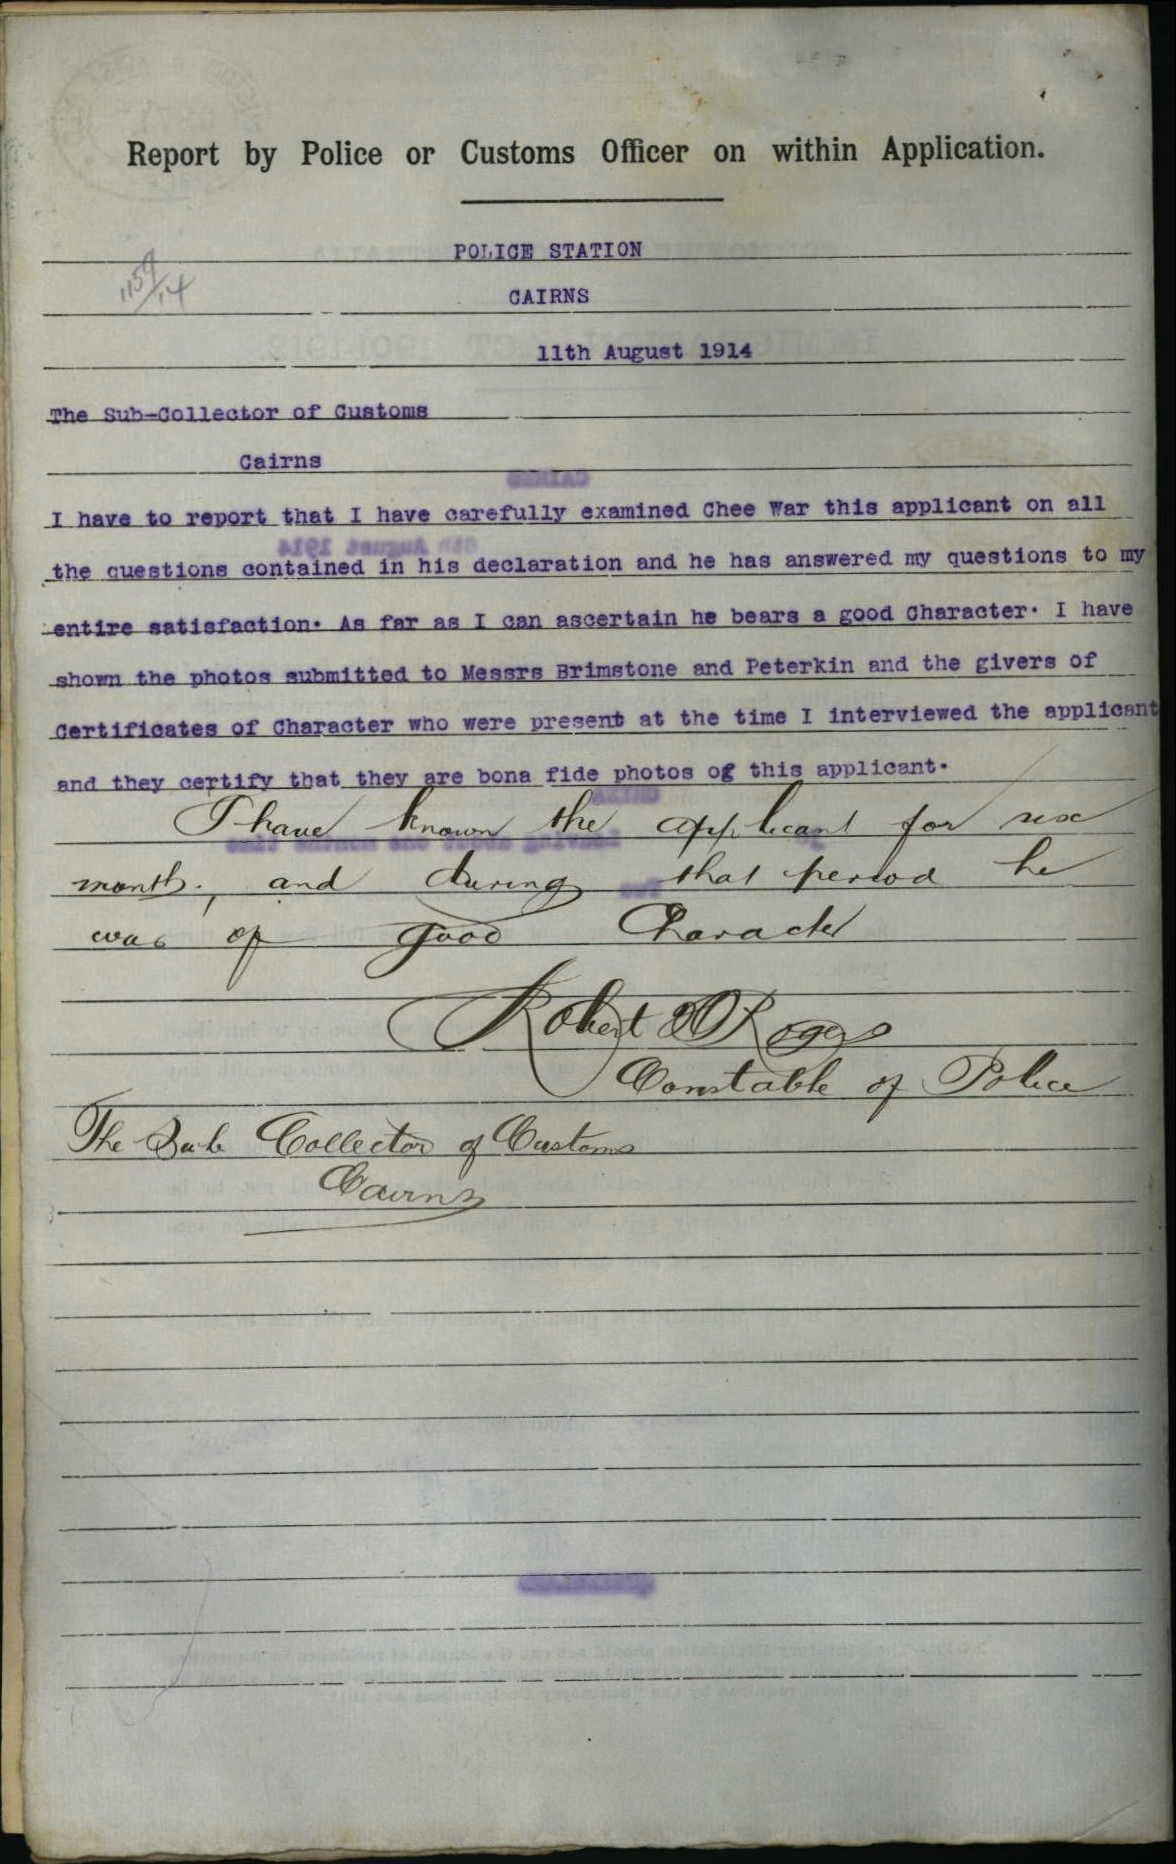 Report by Police or Customs Officer on within Application.
POLICE STATION
1159/14
CAIRNS
11th August 1914
The Sub-Collector of Customs
Cairns
I have to report that I have carefully examined Chee War this applicant on all
the questions contained in his declaration and he has answered my questions to my
entire satisfaction. As far as I can ascertain he bears a good Character. I have
shown the photos submitted to Messrs Brimstone and Peterkin and the givers of
Certificates of Character who were present at the time I interviewed the applicant
and they certify that they are bona fide photos of this applicant.
I have known the applicant for six
months, and during that period he
was of good Character
Robert
Constable of Police
The Sub Collector of Customs
Cairns